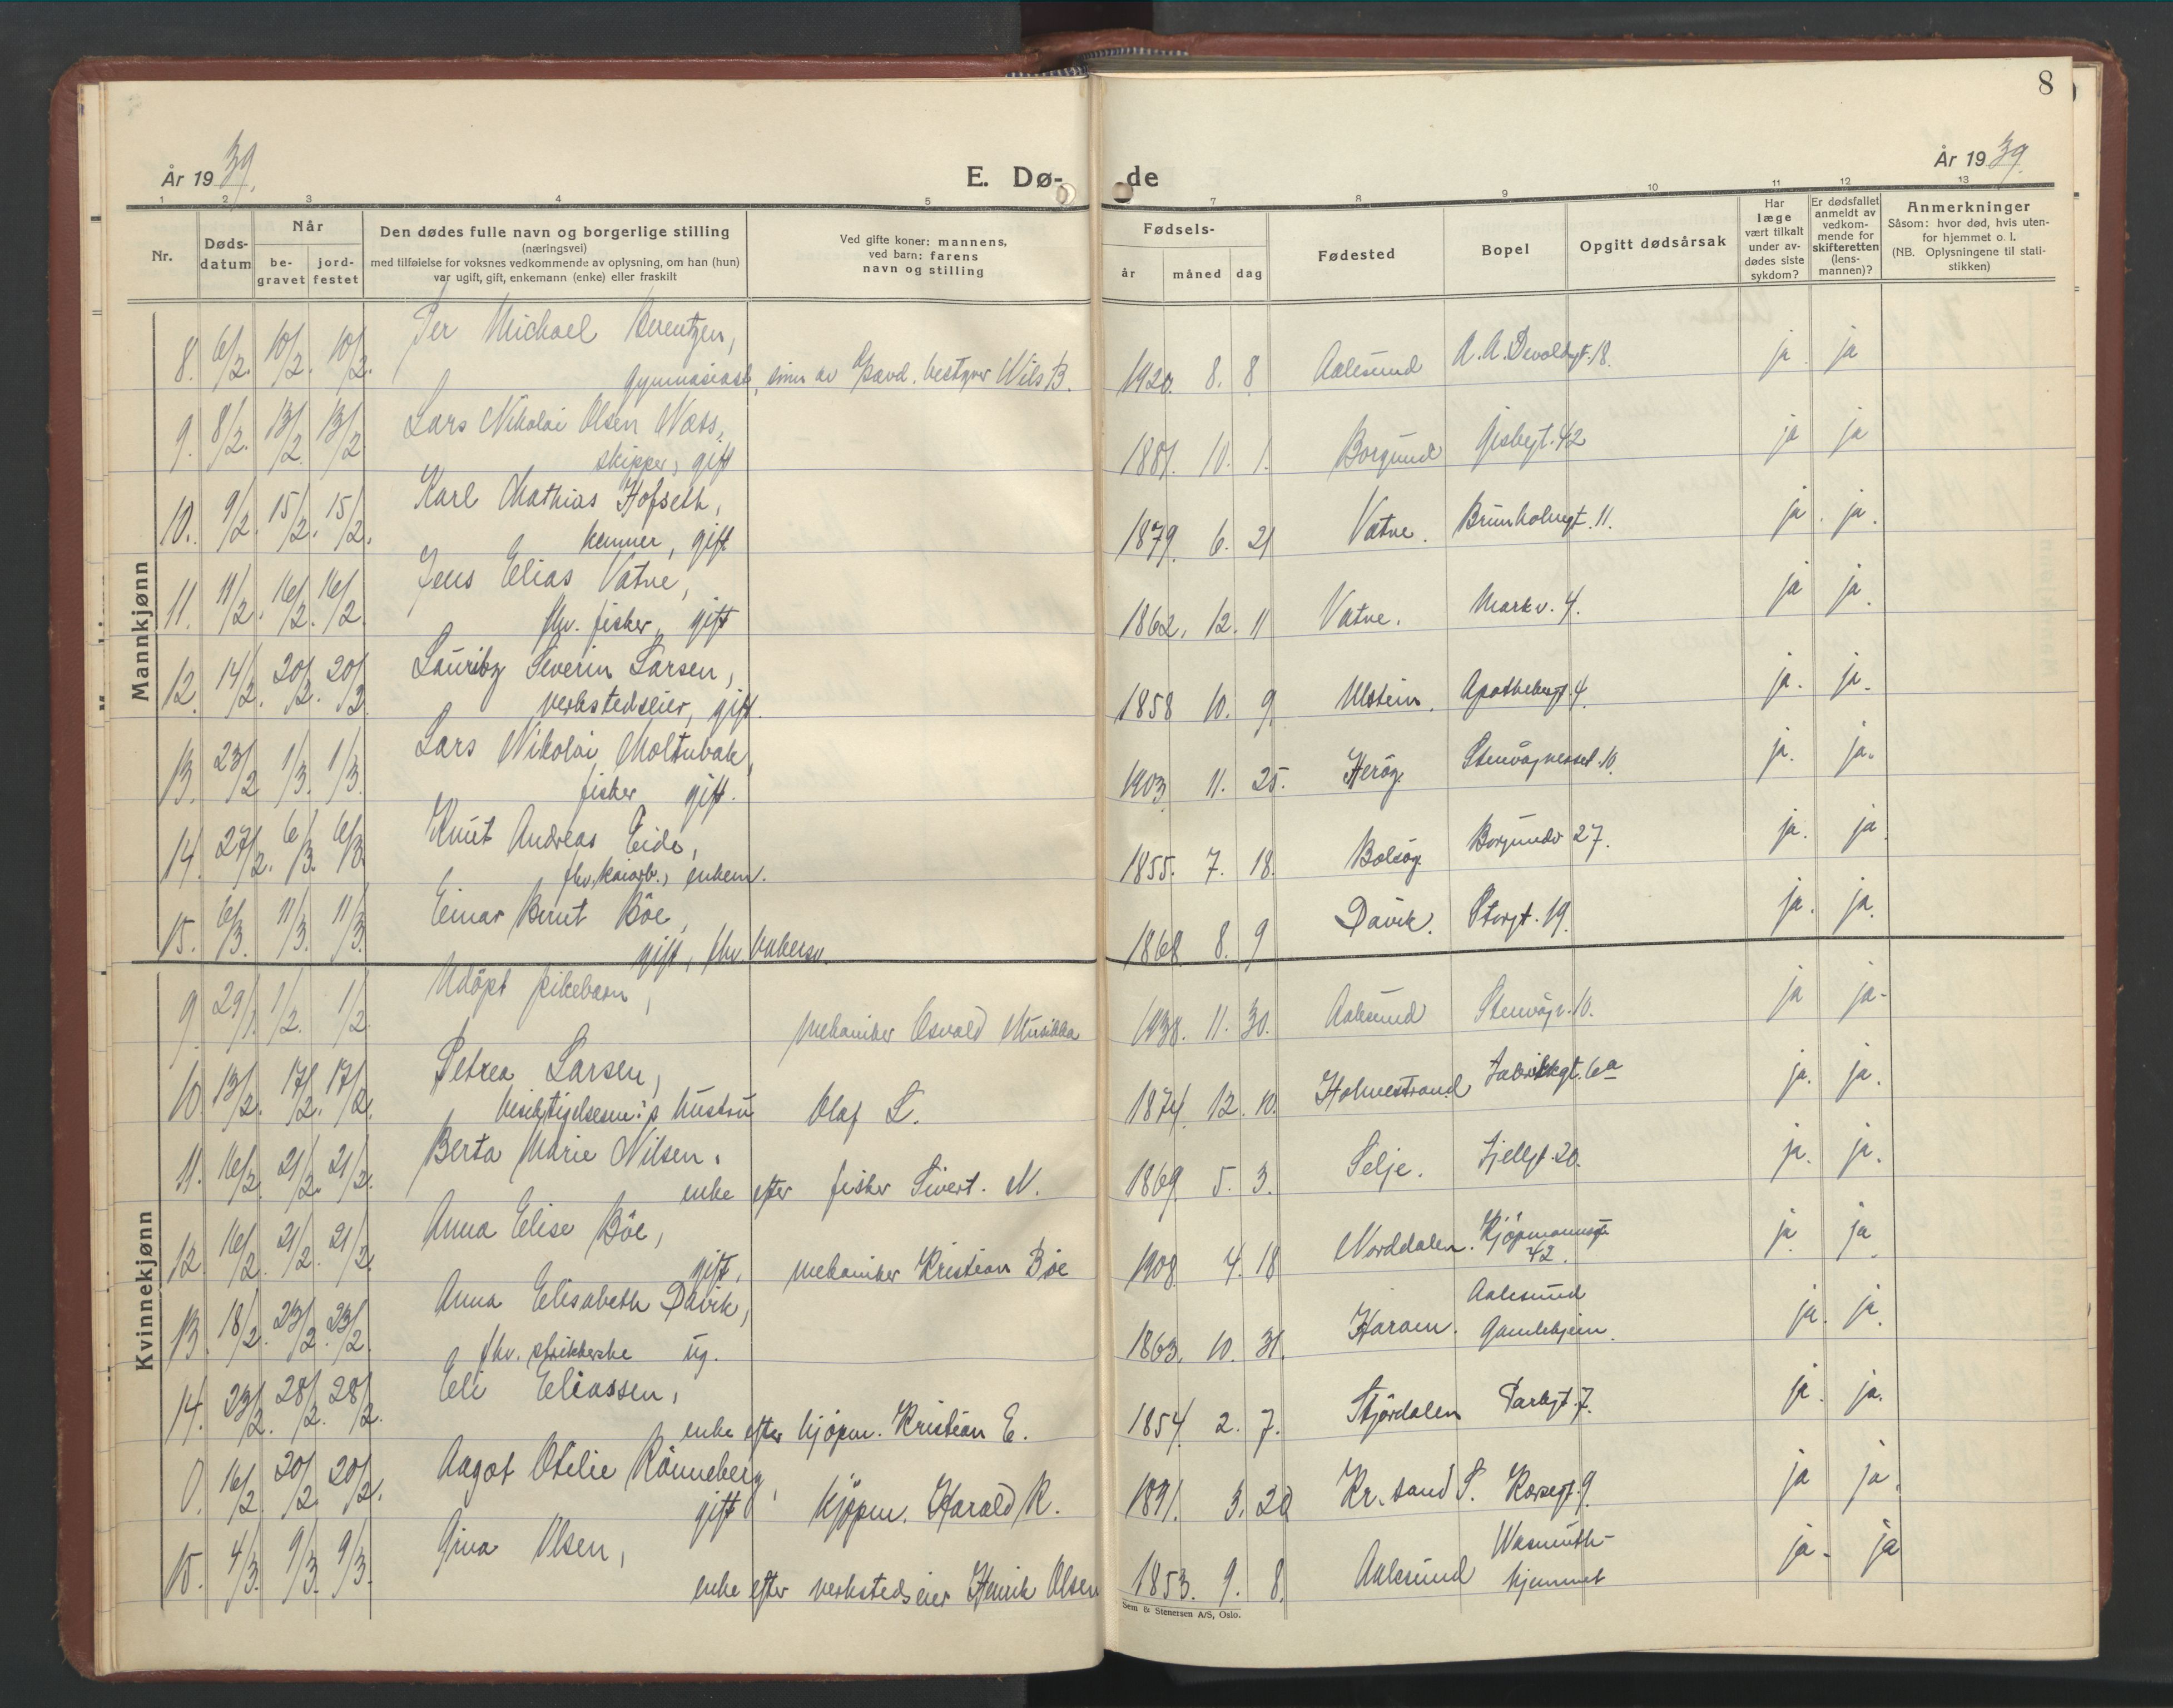 8
År 1939.
E. Dø- -de
År 1939.
1 2 3 4 5 7 8 9 10 11 12 13
Nr.
Døds-
datum
Når
be-
gravet
jord-
festet
Den dødes fulle navn og borgerlige stilling
(næringsvei)
med tilføielse for voksnes vedkommende av oplysning, om han (hun)
var ugift, gift, enkemann (enke) eller fraskilt
Ved gifte koner: mannens,
ved barn: farens
navn og stilling
Fødsels-
år måned dag
Fødested
Bopel
Opgitt dødsårsak
Har
læge
vært tilkalt
under av-
dødes siste
sykdom?
Er dødsfallet
anmeldt av
vedkom-
mende for
skifteretten
(lens-
mannen)?
Anmerkninger
Såsom: hvor død, hvis uten-
for hjemmet o. l.
(NB. Oplysningene til stati-
stikken)
Mannkjønn
8. 6/2. 10/2. 10/2. Per Michael Berentzen,
gymnasiast, sønn av bestyrer Nils B. 1920. 8. 8 Aalesund A. A. Devoldsgt. 18. ja. ja
9. 8/2. 13/2. 13/2. Lars Nikolai Olsen Næss,
skipper, gift 1881. 10. 1. Borgund 42 ja ja
10. 9/2. 15/2. 15/2. Karl Mathias Hofseth,
kemner, gift 1879. 6. 21 Vatne. Brunholmgt. 11. ja. ja.
11. 11/2. 16/2. 16/2. Jens Elias Vatne,
fhv. fisker, gift 1862. 12. 11 Vatne. Markv. 4. ja ja.
12. 14/2. 20/2. 20/2. Lauritz Severin Larsen,
verkstedseier, gift. 1858 10. 9 Ulstein. Apothekergt. 4. ja. ja.
13. 23/2 1/3. 1/3. Lars Nikolai Moltubak,
fisker gift. 1903 11. 25. Herøy. Stenvågnesset. 10. ja. ja.
14. 27/2. 6/3. 6/3. Knut Andreas Eide,
fhv. kaiarb., enkem. 1855. 7. 18. Bolsøy. Borgundv 27. ja. ja.
15. 6/3. 11/3. 11/3. Einar Bernt Böe,
gift, fhv. 1868 8. 9 Davik. Storgt. 19. ja. ja.
Kvinnekjønn
9. 29/1. 1/2. 1/2. Udöpt pikebarn,
mekaniker Osvald 1938. 11. 30. Aalesund Stenvågv. 10. ja ja.
10. 13/2. 17/2. 17/2. Petrea Larsen,
hustru Olaf L. 1874. 12. 10. Holmestrand Fabrikkgt. 6a ja. ja.
11. 16/2. 21/2. 21/2. Berta Marie Nilsen.
enke efter fisker Sivert. N. 1869 5. 3. Selje. Fjellgt. 20. ja. ja.
12. 16/2. 21/2. 21/2. Anna Elise Böe,
gift, mekaniker Kristian Böe 1908 4. 18 Norddalen. Kjöpmannsgt.
42. ja. ja.
13. 18/2. 23/2. 23/2. Anna Elisabeth Davik,
fhv. strikkerske ug. 1863. 10. 31. Haram. Aalesund
Gamlehjem. ja. ja.
14. 23/2. 28/2. 28/2. Eli Eliassen,
enke efter kjöpm. Kristian E. 1854 2. 7. Stjördalen Parkgt. 7. ja. ja.
0. 16/2 20/2 20/2. Aagot Otilie Rönneberg,
gift kjöpm. Harald R. 1891. 3. 20 Kr. sand S. Korsegt. 9. ja ja.
15. 4/3. 9/3. 9/3. Gina Olsen,
enke efter verkstedseier Henrik Olsen 1853. 9. 8. Aalesund Wasmuth-
hjemmet ja. ja
Sem & Stenersen A/S, Oslo.